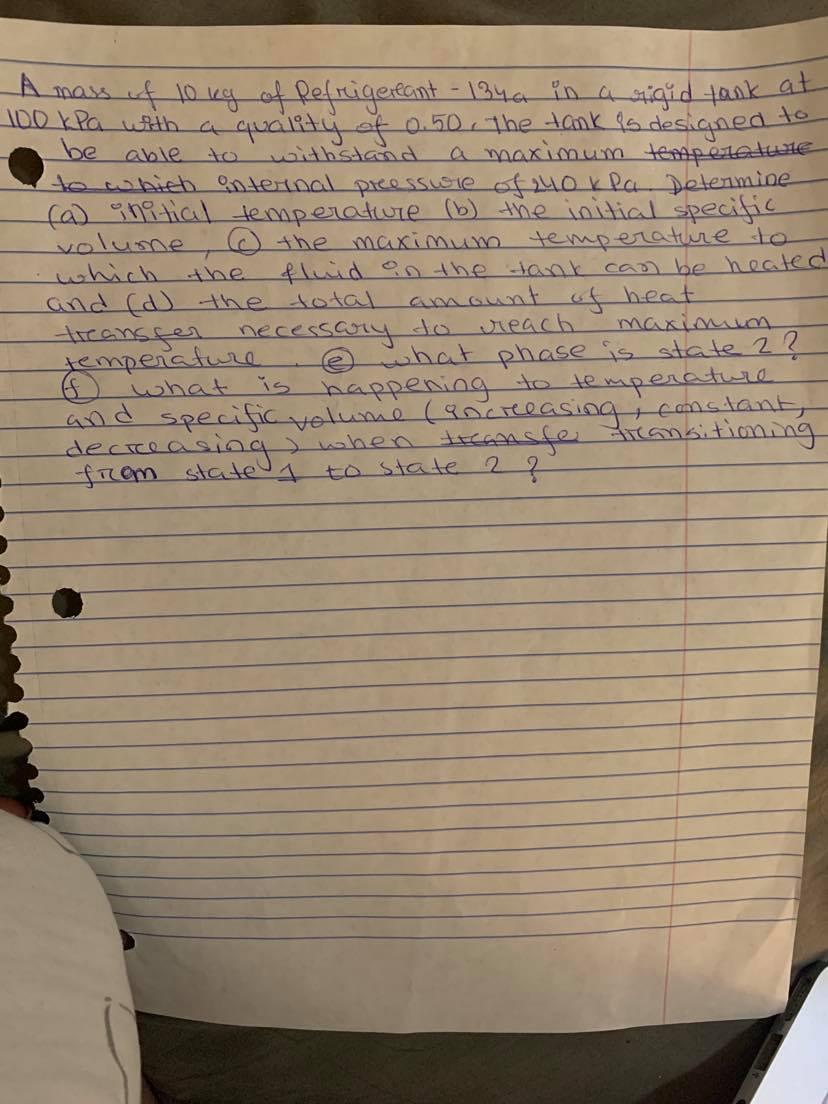 A mass of 10 kg of Refrigereant - 134a in a rigid tank at
100 kPa with a quality of 0.50. The tank is designed to
be able to withstand a maximum temperature
to which internal pressure of 240 kPa. Determine
(a) initial temperature (b) the initial specific
volume, (c) the maximum temperature to
which the fluid in the tank can be heated
and (d) the total amount of heat
transfer necessary to reach maximum
temperature. (e) what phase is state 2?
(f) what is happening to temperature
and specific volume (increasing, constant,
decreasing) when transfe transitioning
from state 1 to state 2?